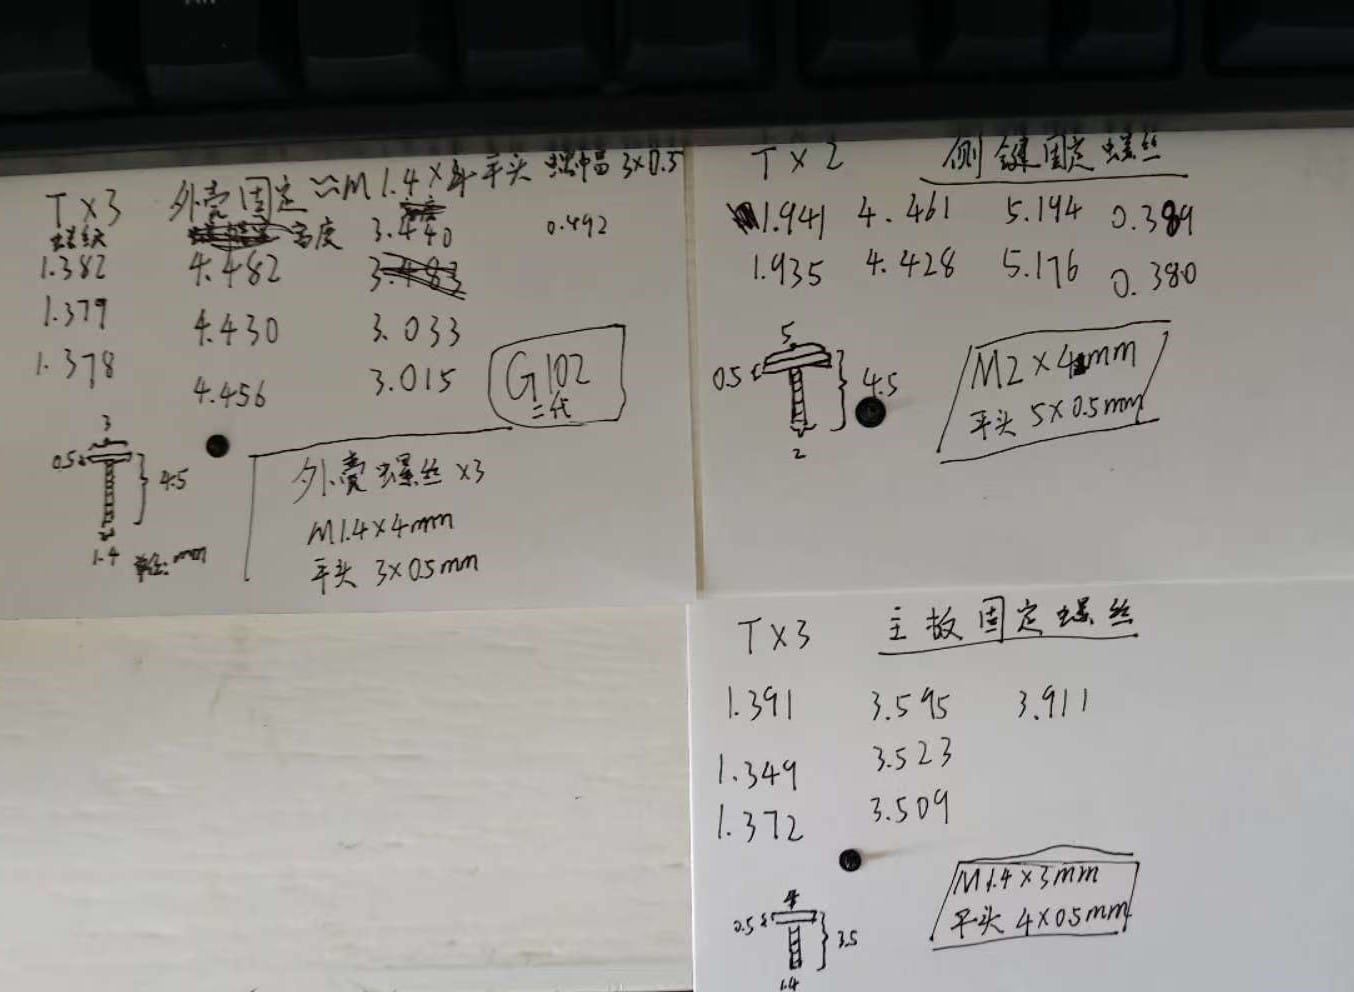 T×3 外壳固定≈M1.4×4 平头 螺帽 3×0.5
螺纹 高度 3.440 0.492
1.382 4.482 3.483
1.379 4.430 3.033
1.378 4.456 3.015
G102
二代
3
0.5
4.5
1.4 单位:mm
外壳螺丝×3
M1.4×4mm
平头 3×0.5mm
T×2 侧键固定螺丝
1.941 4.461 5.194 0.389
1.935 4.428 5.176 0.380
5
0.5
4.5
2
M2×4mm
平头 5×0.5mm
T×3 主板固定螺丝
1.391 3.595 3.911
1.349 3.523
1.372 3.509
4
0.5
3.5
1.4
M1.4×3mm
平头 4×0.5mm